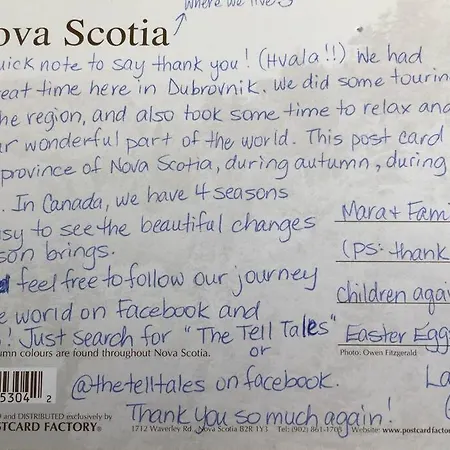 where we live
ova Scotia
uick note to say thank you! (Hvala!!) We had
eat time here in Dubrovnik. We did some tourin
he region, and also took some time to relax and
ur wonderful part of the world. This post card
province of Nova Scotia, during autumn, during
. In Canada, we have 4 seasons
sy to see the beautiful changes
son brings.
feel free to follow our journey
e world on Facebook and
! Just search for "The Tell Tales"
or
@thetelltales on facebook.
Thank you so much again!
Mara + Fami
(PS: thank
children agai
Easter Egg
La
umn colours are found throughout Nova Scotia.
Photo: Owen Fitzgerald
5304 2
and DISTRIBUTED exclusively by
STCARD FACTORY®
1712 Waverley Rd., Nova Scotia B2R 1Y3 Tel: (902) 861-1705 Website: www.postcardfactor